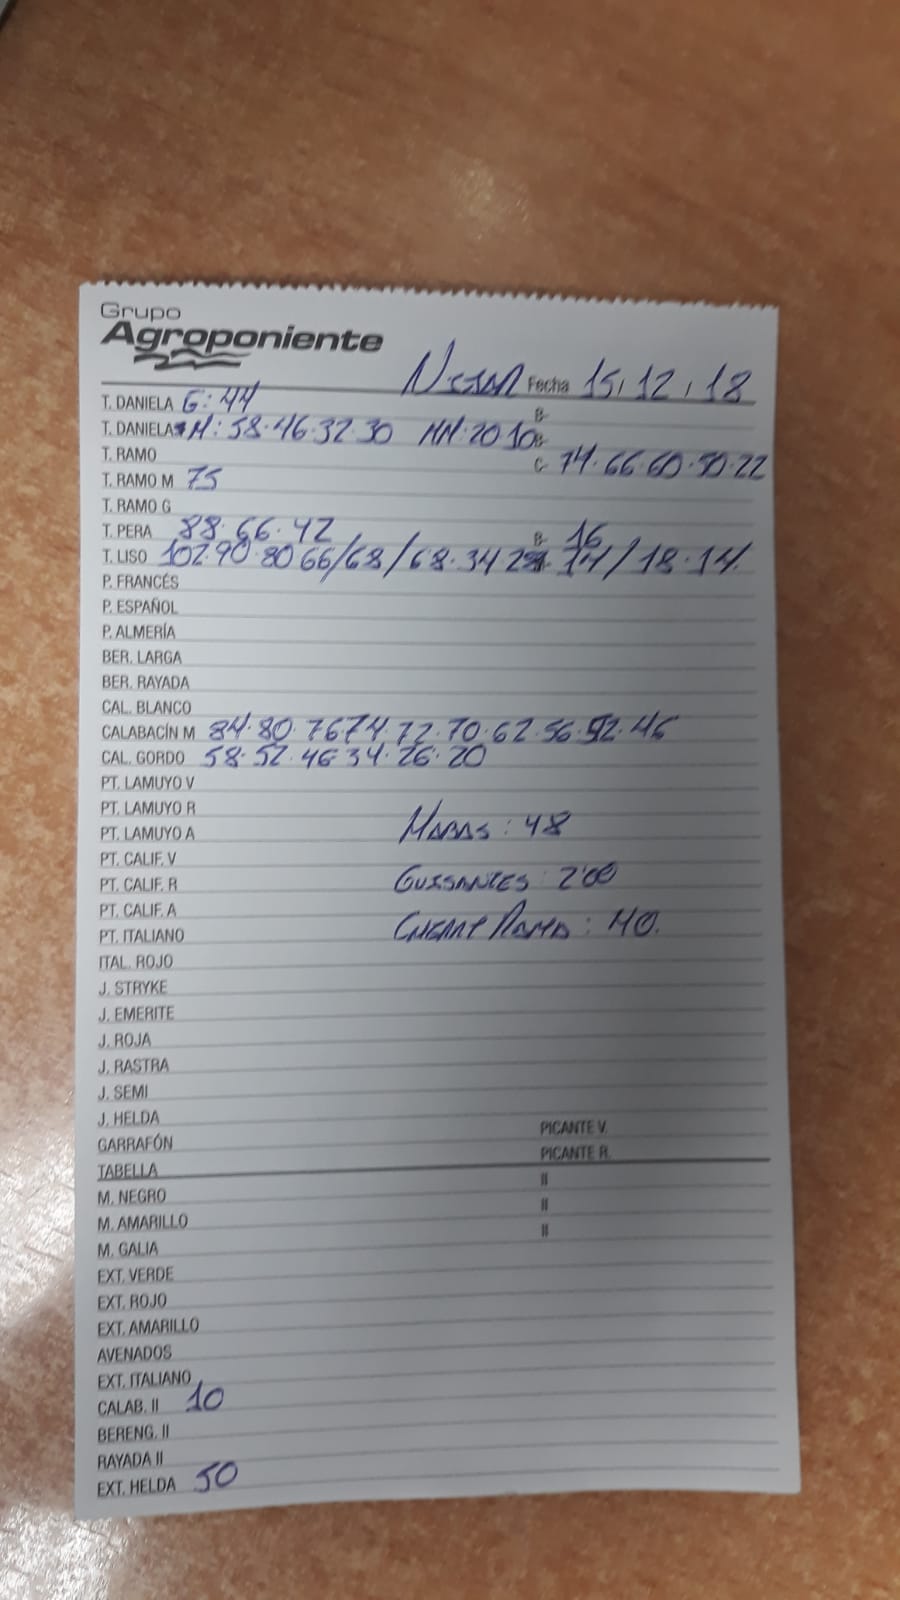 Grupo
Agroponiente
NIJAR Fecha 15, 12, 18
T. DANIELA G: 44 B-
T. DANIELAS M: 58.46.32.30 MM.20 10 B-
T. RAMO C- 74.66.60.50.22
T. RAMO M 75
T. RAMO G
T. PERA 88.66.42 B- 16
T. LISO 102.90.80 66/68/68.34 14/18.14.
P. FRANCÉS
P. ESPAÑOL
P. ALMERÍA
BER. LARGA
BER. RAYADA
CAL. BLANCO
CALABACÍN M 84.80.76 74.72.70.62.56.52.46
CAL. GORDO 58.52.46.34.26.20
PT. LAMUYO V
PT. LAMUYO R
PT. LAMUYO A HABAS: 48
PT. CALIF. V
PT. CALIF. R GUISANTES: 2'00
PT. CALIF. A
PT. ITALIANO RAMA: 40.
ITAL. ROJO
J. STRYKE
J. EMERITE
J. ROJA
J. RASTRA
J. SEMI
J. HELDA
GARRAFÓN PICANTE V.
TABELLA PICANTE R.
M. NEGRO II
M. AMARILLO II
M. GALIA II
EXT. VERDE
EXT. ROJO
EXT. AMARILLO
AVENADOS
EXT. ITALIANO
CALAB. II 10
BERENG. II
RAYADA II
EXT. HELDA 50